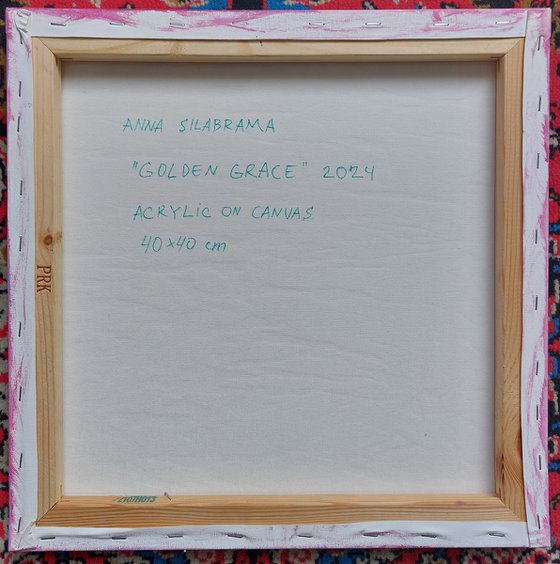 ANNA SILABRAMA
"GOLDEN GRACE" 2024
ACRYLIC ON CANVAS
40x40 cm
PRK